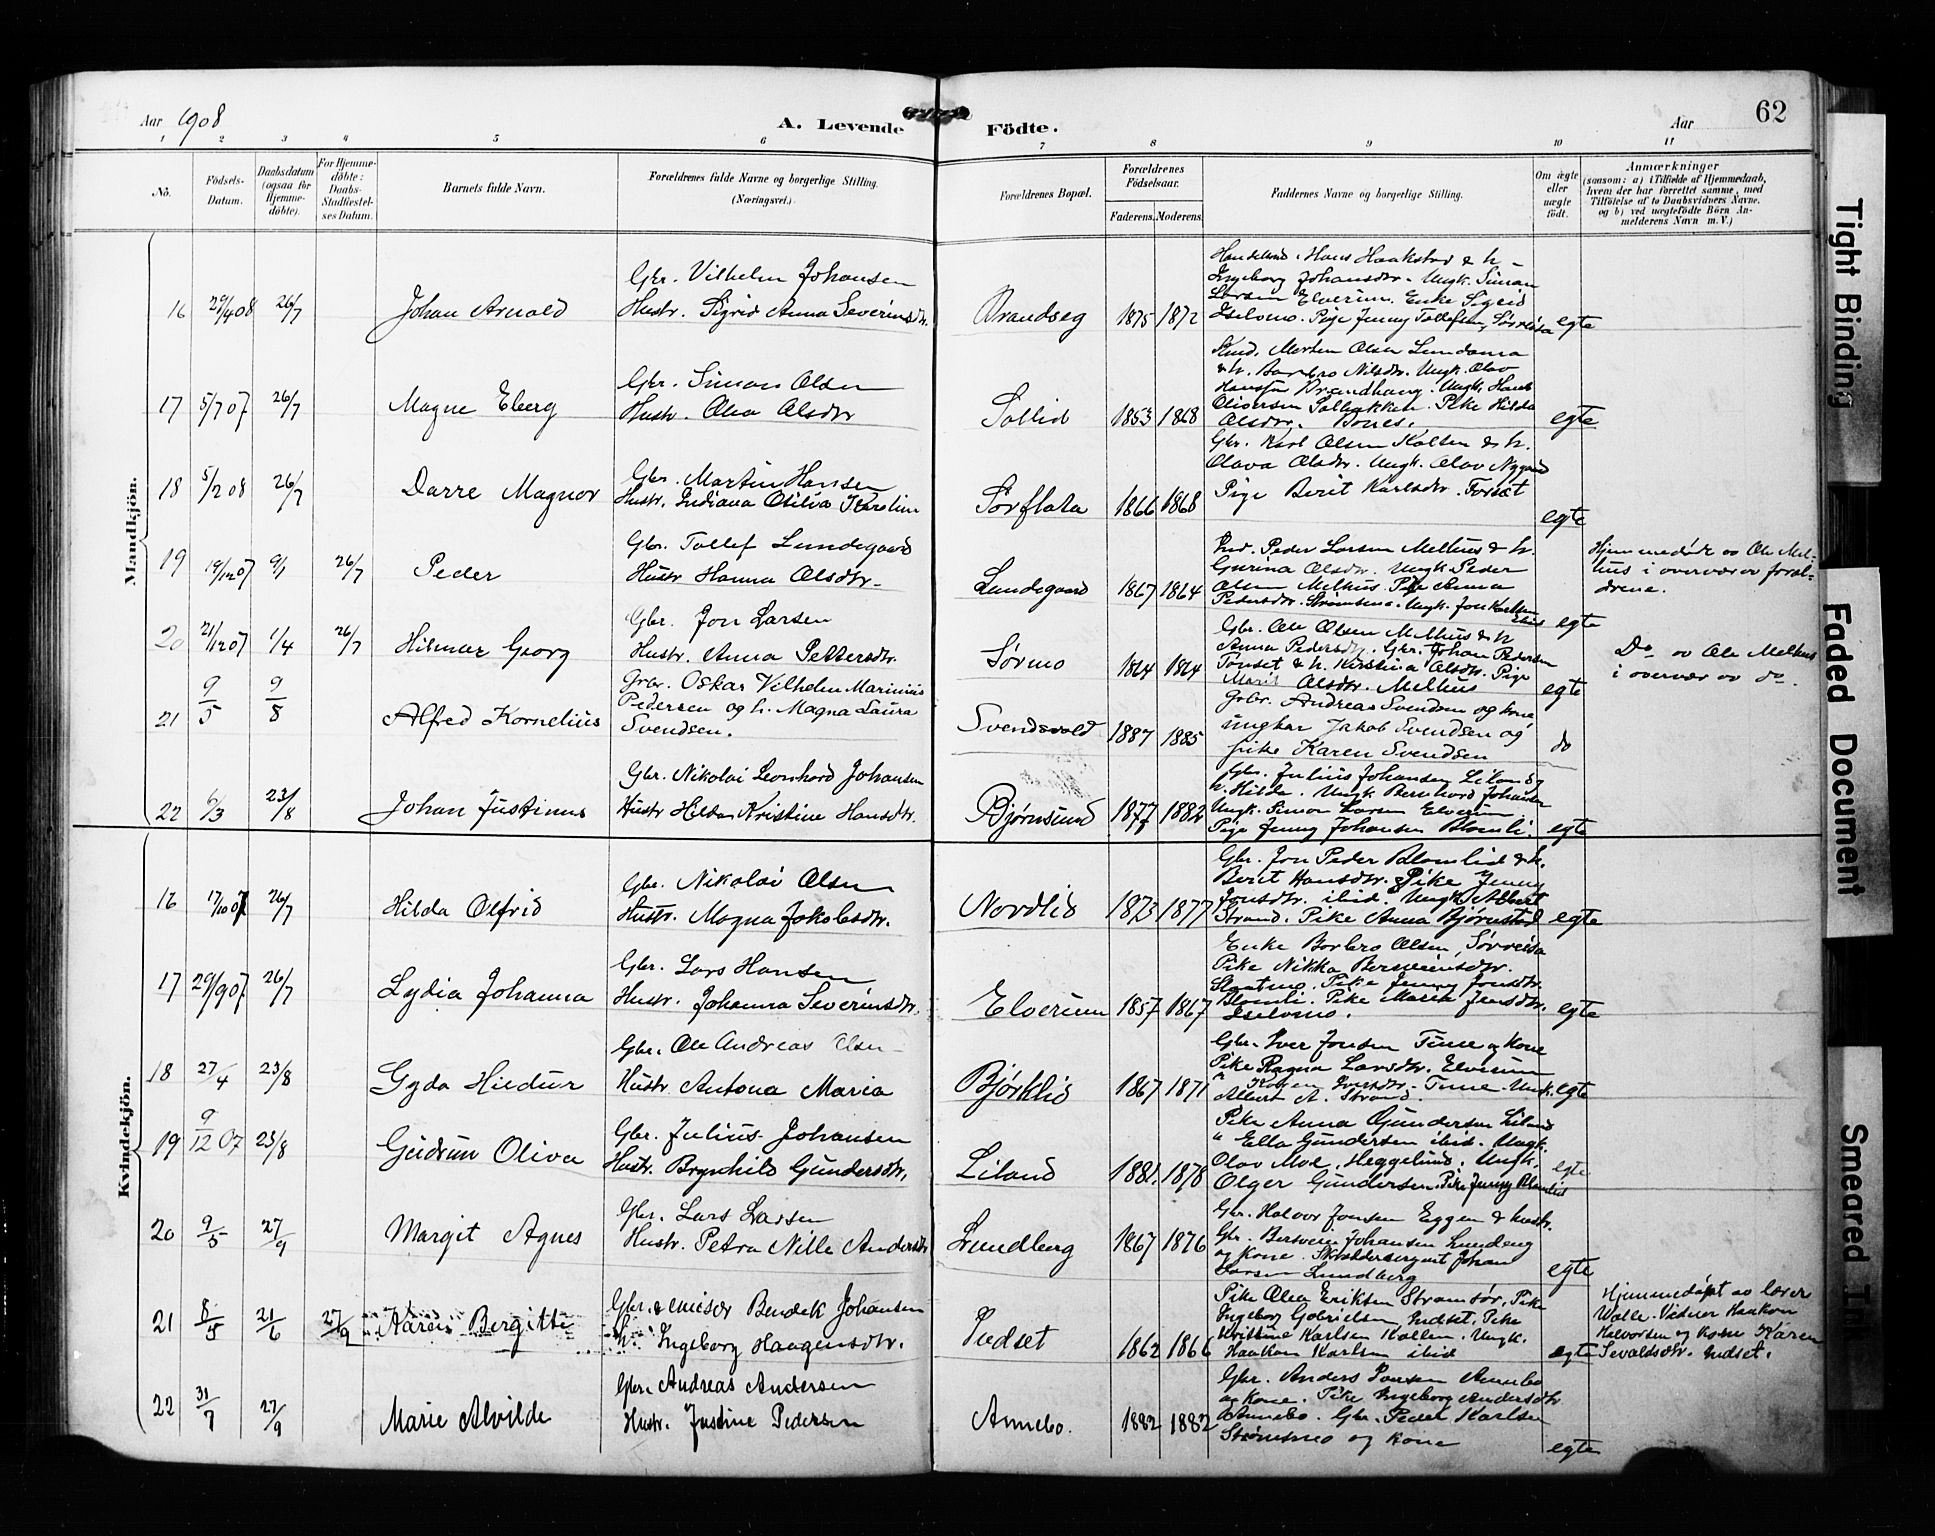 Aar 1908
A. Levende Födte.
Aar
62
1 2 3 4 5 6 7 8 9 10 11
Nō.
Födsels-Datum.
Daabsdatum (ogsaa for Hjemme-döbte).
For Hjemme-döbte: Daabs-Stadfæstel-ses Datum.
Barnets fulde Navn.
Forældrenes fulde Navne og borgerlige Stilling. (Næringsvei.)
Forældrenes Bopæl.
Forældrenes Födselsaar.
Faderens. Moderens.
Faddernes Navne og borgerlige Stilling.
Om ægte eller uægte födt.
Anmærkninger
(saasom: a) i Tilfælde af Hjemmedaab,
hvem der har forrettet samme, med
Tilföielse af to Daabsvidners Navne.
og b) ved uægtefödte Börn An-
melderens Navn m. V.)
Mandkjön.
16 29/4 08 26/7 Johan Arnold
Gbr. Vilhelm Johansen
Hustr. Sigrid Anna Severinsdtr.
Brandseg 1875 1872
Hans Haakstad & h.
Ingeborg Johansdtr. Ungk. Simon
Larsen Elverum. Enke Sigrid
Pige Jenny Tollefsen,
egte
17 5/7 07 26/7 Magne Eberg
Gbr. Simon Olsen
Hustr. Olea Olsdtr
Sollid 1853 1868
Morten Olsen
& h. Barbro Nilsdtr. Ungk. Olav
Ungk. Hans
Oliversen Solbakken. Pike Hilda
Olsdtr. Bones.
egte
18 5/2 08 26/7 Darre Magnor
Gbr. Martin Hansen
Hustr. Indiana Otilia Karoline
Sørflata 1866 1868
Gbr. Karl Olsen Kolsen & h.
Olava Olsdtr. Ungk. Olav Nygaard
Pige Berit Karlsdtr. Forset
egte
19 19/12 07 9/1 26/7 Peder
Gbr. Tollef Lundegaard
Hustr Hanna Olsdtr.
Lundegaard 1867 1864
Ind. Peder Larsen Melhus & h.
Gurina Olsdtr. Ungk Peder
Olsen Melhus Pike Anna
Pedersdtr. Strømsmo. Ungk. Jon Karlsen
egte
Hjemmedøbt av Ole Mel-
hus i overvær av foræl-
drene.
20 21/12 07 1/4 26/7 Hilmar Georg
Gbr. Jon Larsen
Hustr. Anna Pettersdtr.
Sørmo 1864 1864
Gbr. Ole Olsen Melhus & h
Anna Pedersdtr. Gbr. Johan Pedersen
Tønset & h. Kirstina Olsdtr. Pige
Marit Olsdtr. Melhus
egte
Do av Ole Melhus
i overvær av do.
21 9/5 9/8 Alfred Kornelius
Grbr. Oskar Vilhelm Marinius
Pedersen og h. Magna Laura
Svendsen.
Svendsvold 1887 1885
Grbr. Andreas Svendsen og kone
ungkar Jakob Svendsen og
pike Karen Svendsen
do
22 6/3 23/8 Johan Justinus
Gbr. Nikolai Leonhard Johansen
Hustr Hilda Kristine Hansdtr.
Bjørnsund 1877 1882
Gbr. Julius Johansen Liland &
h. Hilda. Ungk Bernhard Johansen
Ungk. Simon Larsen Elverum
Pige Jenny Johansen Blomli.
egte
Kvindekjön.
16 17/10 07 26/7 Hilda Olfrid
Gbr. Nikolai Olsen
Hustr. Magna Jakobsdtr.
Nordlid 1873 1877
Gbr. Jon Peder Blomlid & h.
Berit Hansdtr. Pike Jenny
Jonsdtr. ibid. Ungk. Albert
Strand. Pike Anna Bjørnstad
egte
17 29/9 07 26/7 Lydia Johanna
Gbr. Lars Hansen
Hustr. Johanna Severinsdtr.
Elverum 1857 1867
Enke Barbro Olsen,
Pike Nikka
Pike Jenny Jonsdtr.
Blomli. Pike Marek Jensdtr.
egte
18 27/4 23/8 Gyda Hildur
Gbr. Ole Andreas Olsen
Hustr Antona Maria
Bjørklid 1867 1871
Gbr. Iver Jonsen Tune og kone
Pike Ragna Larsdtr. Elverum
" Karen Iversdtr. Tune. Ungk.
Albert A. Strand.
egte
19 9/12 07 23/8 Gudrun Oliva
Gbr. Julius Johansen
Hustr. Brynhild Gundersdtr.
Liland 1881. 1878
Pike Anna Gundersen Liland
" Ella Gundersen ibid. Ungk.
Olav Moe, Heggelund. Ungk.
Olger Gundersen. Pike Jenny Blomlid
egte
20 9/5 27/9 Margit Agnes
Gbr. Lars Larsen
Hustr. Petra Nille Andersdtr
Lundberg 1867 1876
Gbr. Halvor Jonsen Eggen & hustr.
Gbr. Bersvein Johansen Lundeng
og kone. Skræddersergent Johan
Larsen Lundberg
egte
21 8/5 21/6 27/9 Karen Bergitte
Gbr. & Bendek Johansen
h. Ingeborg Haagensdtr.
Indset 1862 1866
Pike Olea Eriksen Strømsør, Pike
Ingeborg Gabrielsen, Indset. Pike
Kristine Karlsen Kollen. Ungk.
Haakon Karlsen ibid
egte
Hjemmedøpt av lærer
Wolle. Vidner Haakon
Halvorsen og kone Karen
Sevaldsdtr. Indset.
22 31/7 27/9 Marie Alvilde
Gbr. Andreas Andersen
Hustr. Justine Pedersen
Annebo. 1882 1882
Gbr. Anders Annebo
og kone. Pike Ingeborg Andersdtr
Annebo. Gbr. Peder Karlsen
Strømsmo og kone
egte
Tight Binding
Faded Document
Smeared Ink